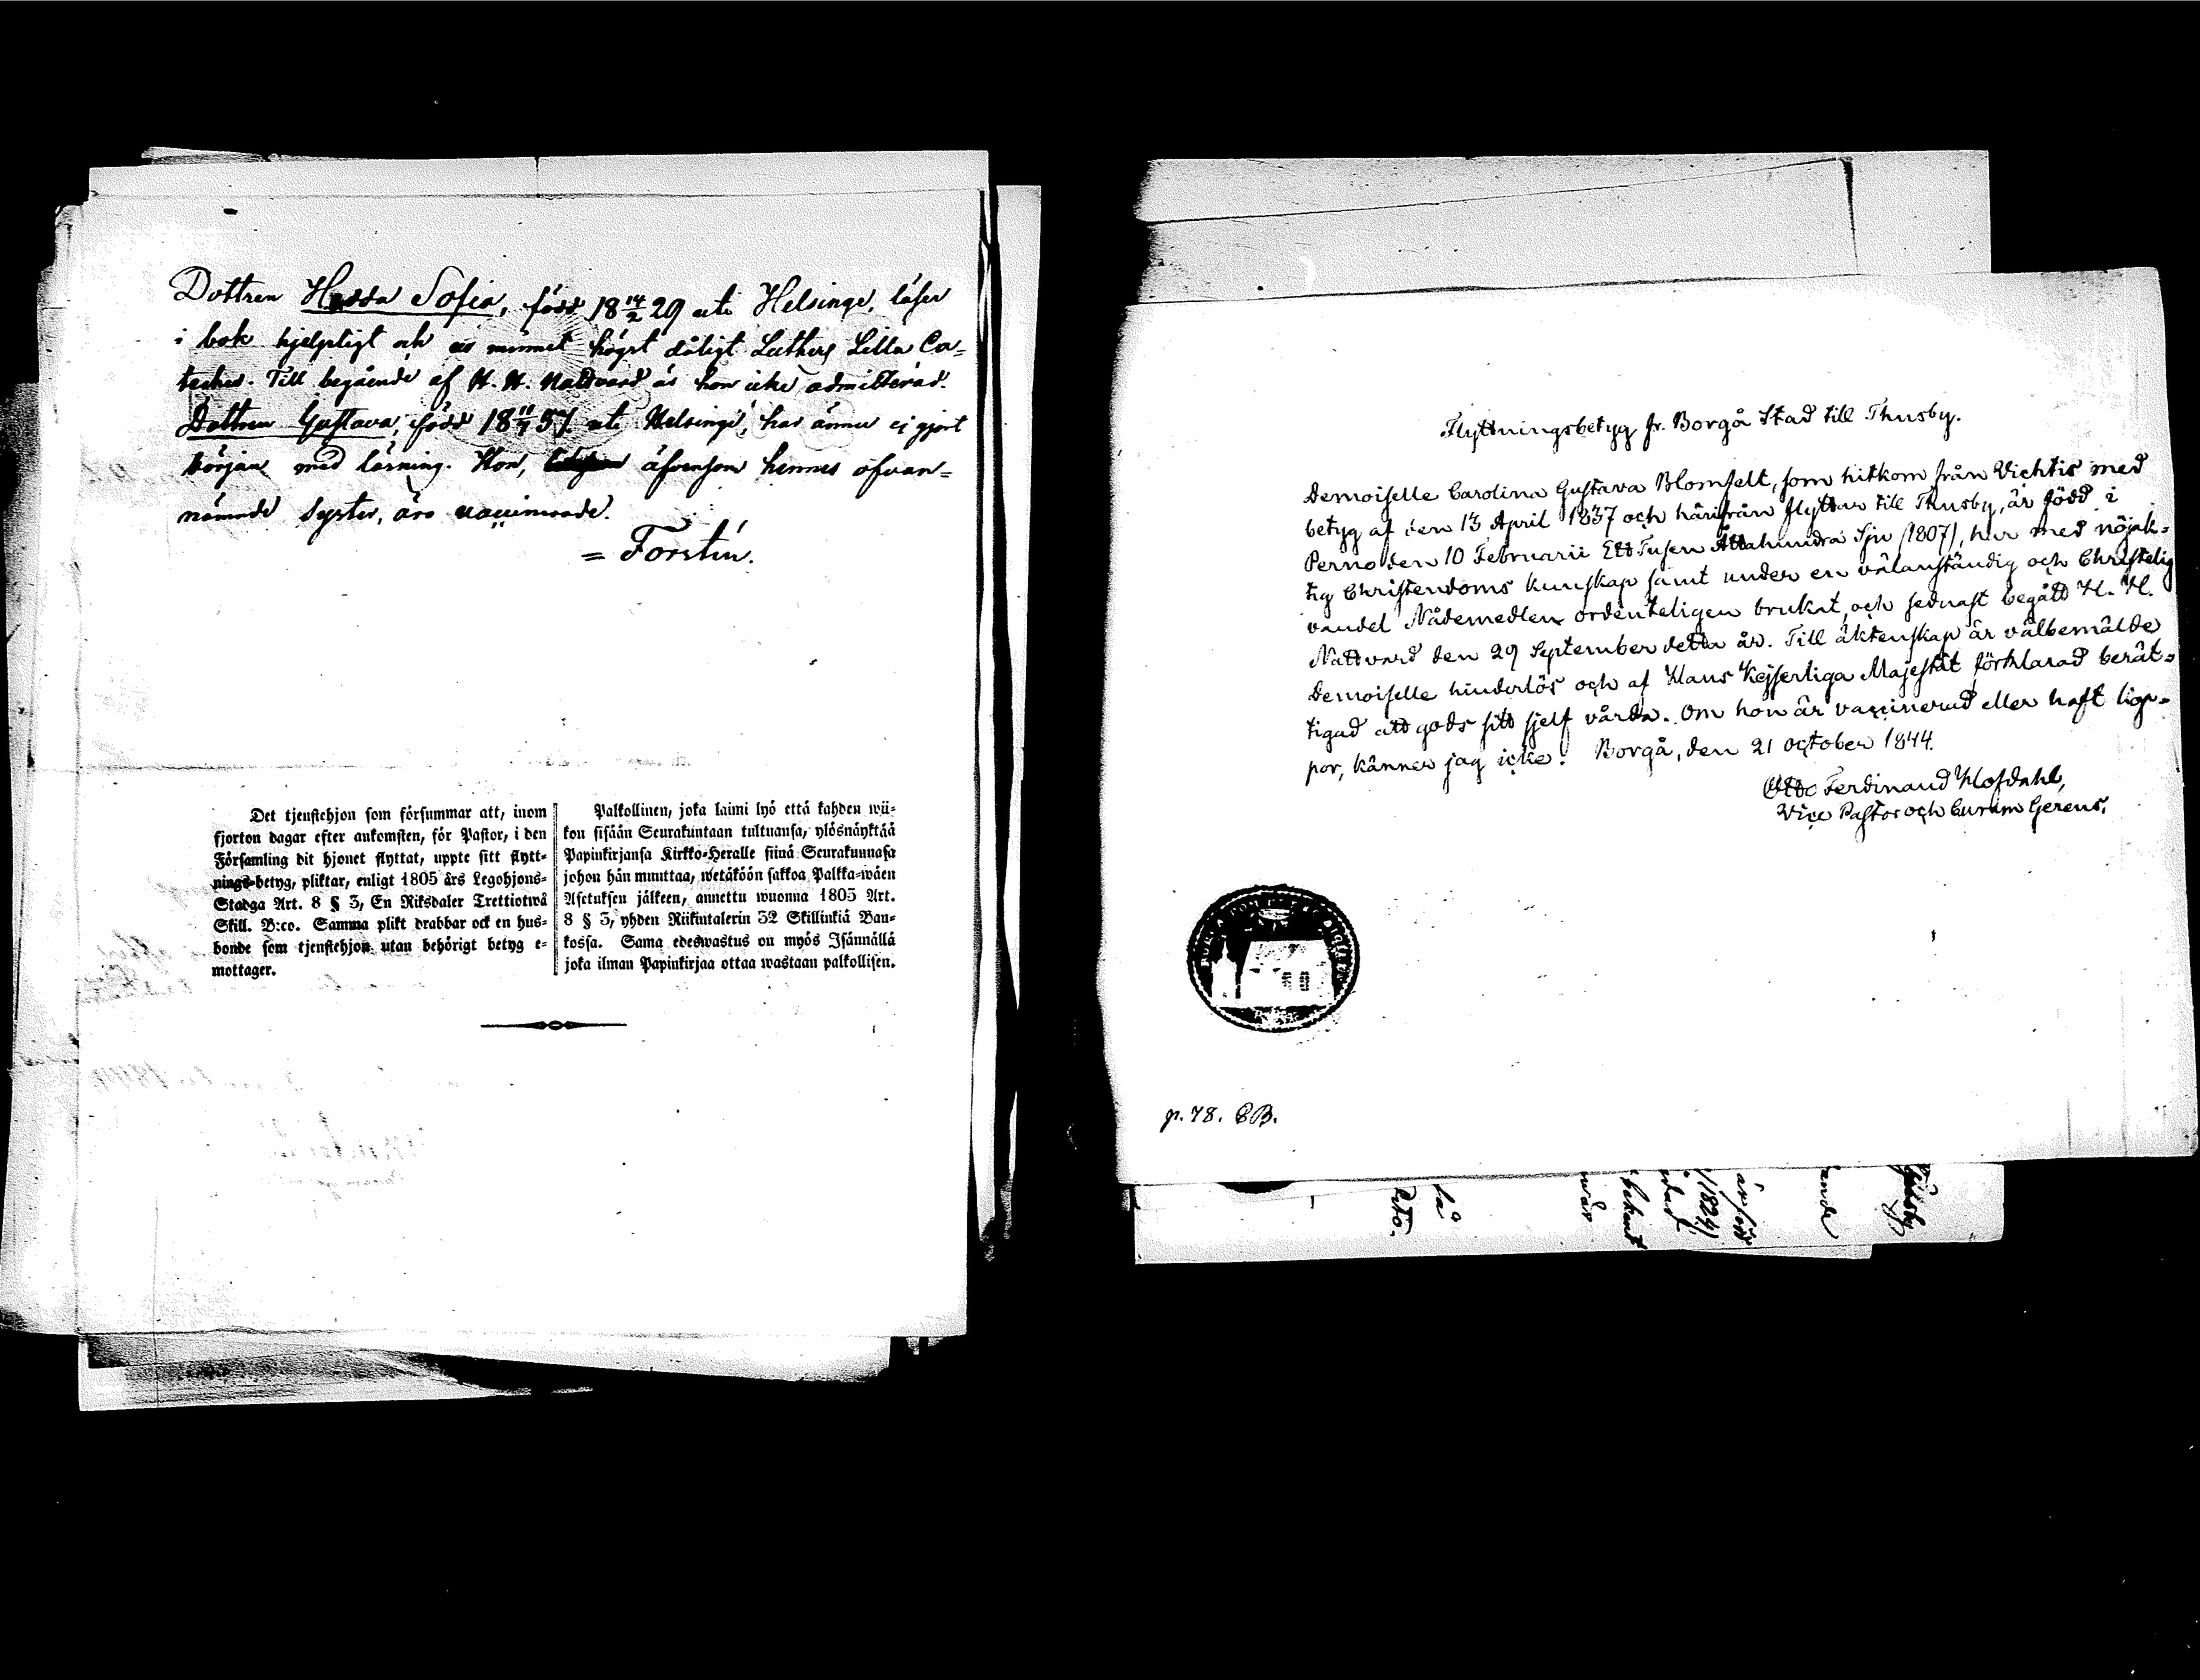 Dottren Hedda Sofia, född 18 14/2 29 uti Helsinge, läser
i bok hjelpligt och ur minnet högst dåligt Luthers Lilla Ca=
teches. Till begående af H. H. Nattvard är hon icke admitterad.
Dottren Gustava, född 18 11/7 37 uti Helsinge, har ännu ej gjort
början med läsning. Hon, äfvensom hennes ofvan=
nämnde syster, äro vaccinerade.
= Forstén.
Det tjenstehjon som försummar att, inom
fjorton dagar efter ankomsten, för Pastor, i den
Församling dit hjonet flyttat, uppte sitt flytt-
nings-betyg, pliktar, enligt 1805 års Legohjons-
Stadga Art. 8 § 3, En Riksdaler Trettiotwå
Skill. B:co. Samma plikt drabbar ock en hus-
bonde som tjenstehjon utan behörigt betyg e-
mottager.
Palkollinen, joka laimi lyö että kahden wii-
kon sisään Seurakuntaan tultuansa, ylösnäyktää
Papinkirjansa Kirkko-Heralle siinä Seurakunnasa
johon hän muuttaa, wetäköön sakkoa Palkka-wäen
Asetuksen jälkeen, annettu wuonna 1805 Art.
8 § 3, yhden Riikintalerin 32 Skillinkiä Ban-
kossa. Sama edeswastus on myös Isännällä
joka ilman Papinkirjaa ottaa wastaan palkollisen.
Flyttningsbetyg fr. Borgå Stad till Thusby.
Demoiselle Carolina Gustava Blomfelt, som hitkom från Vichtis med
betyg af den 13 April 1837 och härifrån flyttar till Thusby, är född i
Perno den 10 Februarii Ett Tusen Åttahundra Sju (1807), har med nöjak=
tig Christendoms kunskap samt under en välanständig och Christelig
vandel Nådemedlen ordenteligen brukat, och sednast begått H. H.
Nattvard den 29 September detta år. Till äktenskap är välbemälde
Demoiselle hinderlös och af Hans Kejserliga Majestät förklarad berät=
tigad att gods sitt sjelf vårda. Om hon är vaccinerad eller haft kop=
por, känner jag icke. Borgå, den 21 October 1844.
Otto Ferdinand Hofdahl,
Vice Pastor och Curam Gerens.
p. 78. CB.